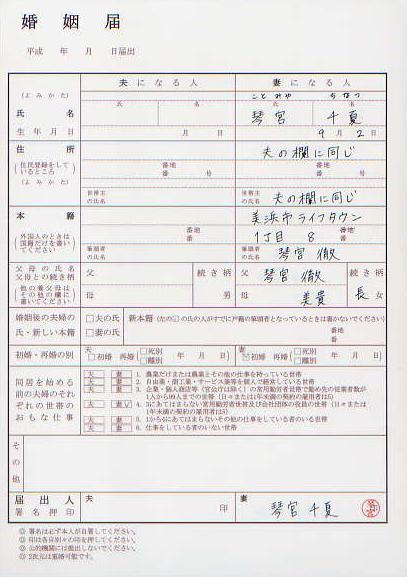 婚姻届
平成 年 月 日届出
夫になる人 妻になる人
(よみかた) ことみや ちなつ
氏 名 氏 名 氏 名
琴宮 千夏
生年月日 月 日 9月2日
住所 夫の欄に同じ
(住民登録をしているところ) 番地 番 号 番地 番 号
(よみかた)
世帯主の氏名 世帯主の氏名 夫の欄に同じ
本籍 美浜市ライフタウン
(外国人のときは国籍だけを書いてください) 番地 番 1丁目 8 番地 番
筆頭者の氏名 筆頭者の氏名 琴宮 徹
父母の氏名 父母との続き柄 父 続き柄 父 琴宮 徹 続き柄
(他の養父母はその他の欄に書いてください) 母 男 母 美貴 長女
婚姻後の夫婦の氏・新しい本籍 □夫の氏 □妻の氏 新本籍(左の☑の氏の人がすでに戸籍の筆頭者となっているときは書かないでください)
番地 番
初婚・再婚の別 夫 □初婚 再婚(□死別 □離別 年 月 日) 妻 初婚 再婚(□死別 □離別 年 月 日)
同居を始める前の夫婦のそれぞれの世帯のおもな仕事
夫 妻 1. 農業だけまたは農業とその他の仕事を持っている世帯
夫 妻 2. 自由業・商工業・サービス業等を個人で経営している世帯
夫 妻 3. 企業・個人商店等(官公庁は除く)の常用勤労者世帯で勤め先の従業者数が1人から99人までの世帯(日々または1年未満の契約の雇用者は5)
夫 妻✓ 4. 3にあてはまらない常用勤労者世帯及び会社団体の役員の世帯(日々または1年未満の契約の雇用者は5)
夫 妻 5. 1から4にあてはまらないその他の仕事をしている者のいる世帯
夫 妻 6. 仕事をしている者のいない世帯
その他
届出人 署名押印 夫 印 妻 琴宮 千夏
◎ 署名は必ず本人が自署してください。
◎ 印は各自別々の印を押してください。
◎ 公的機関には提出しないでください。
◎ 2次元は重婚可能です。